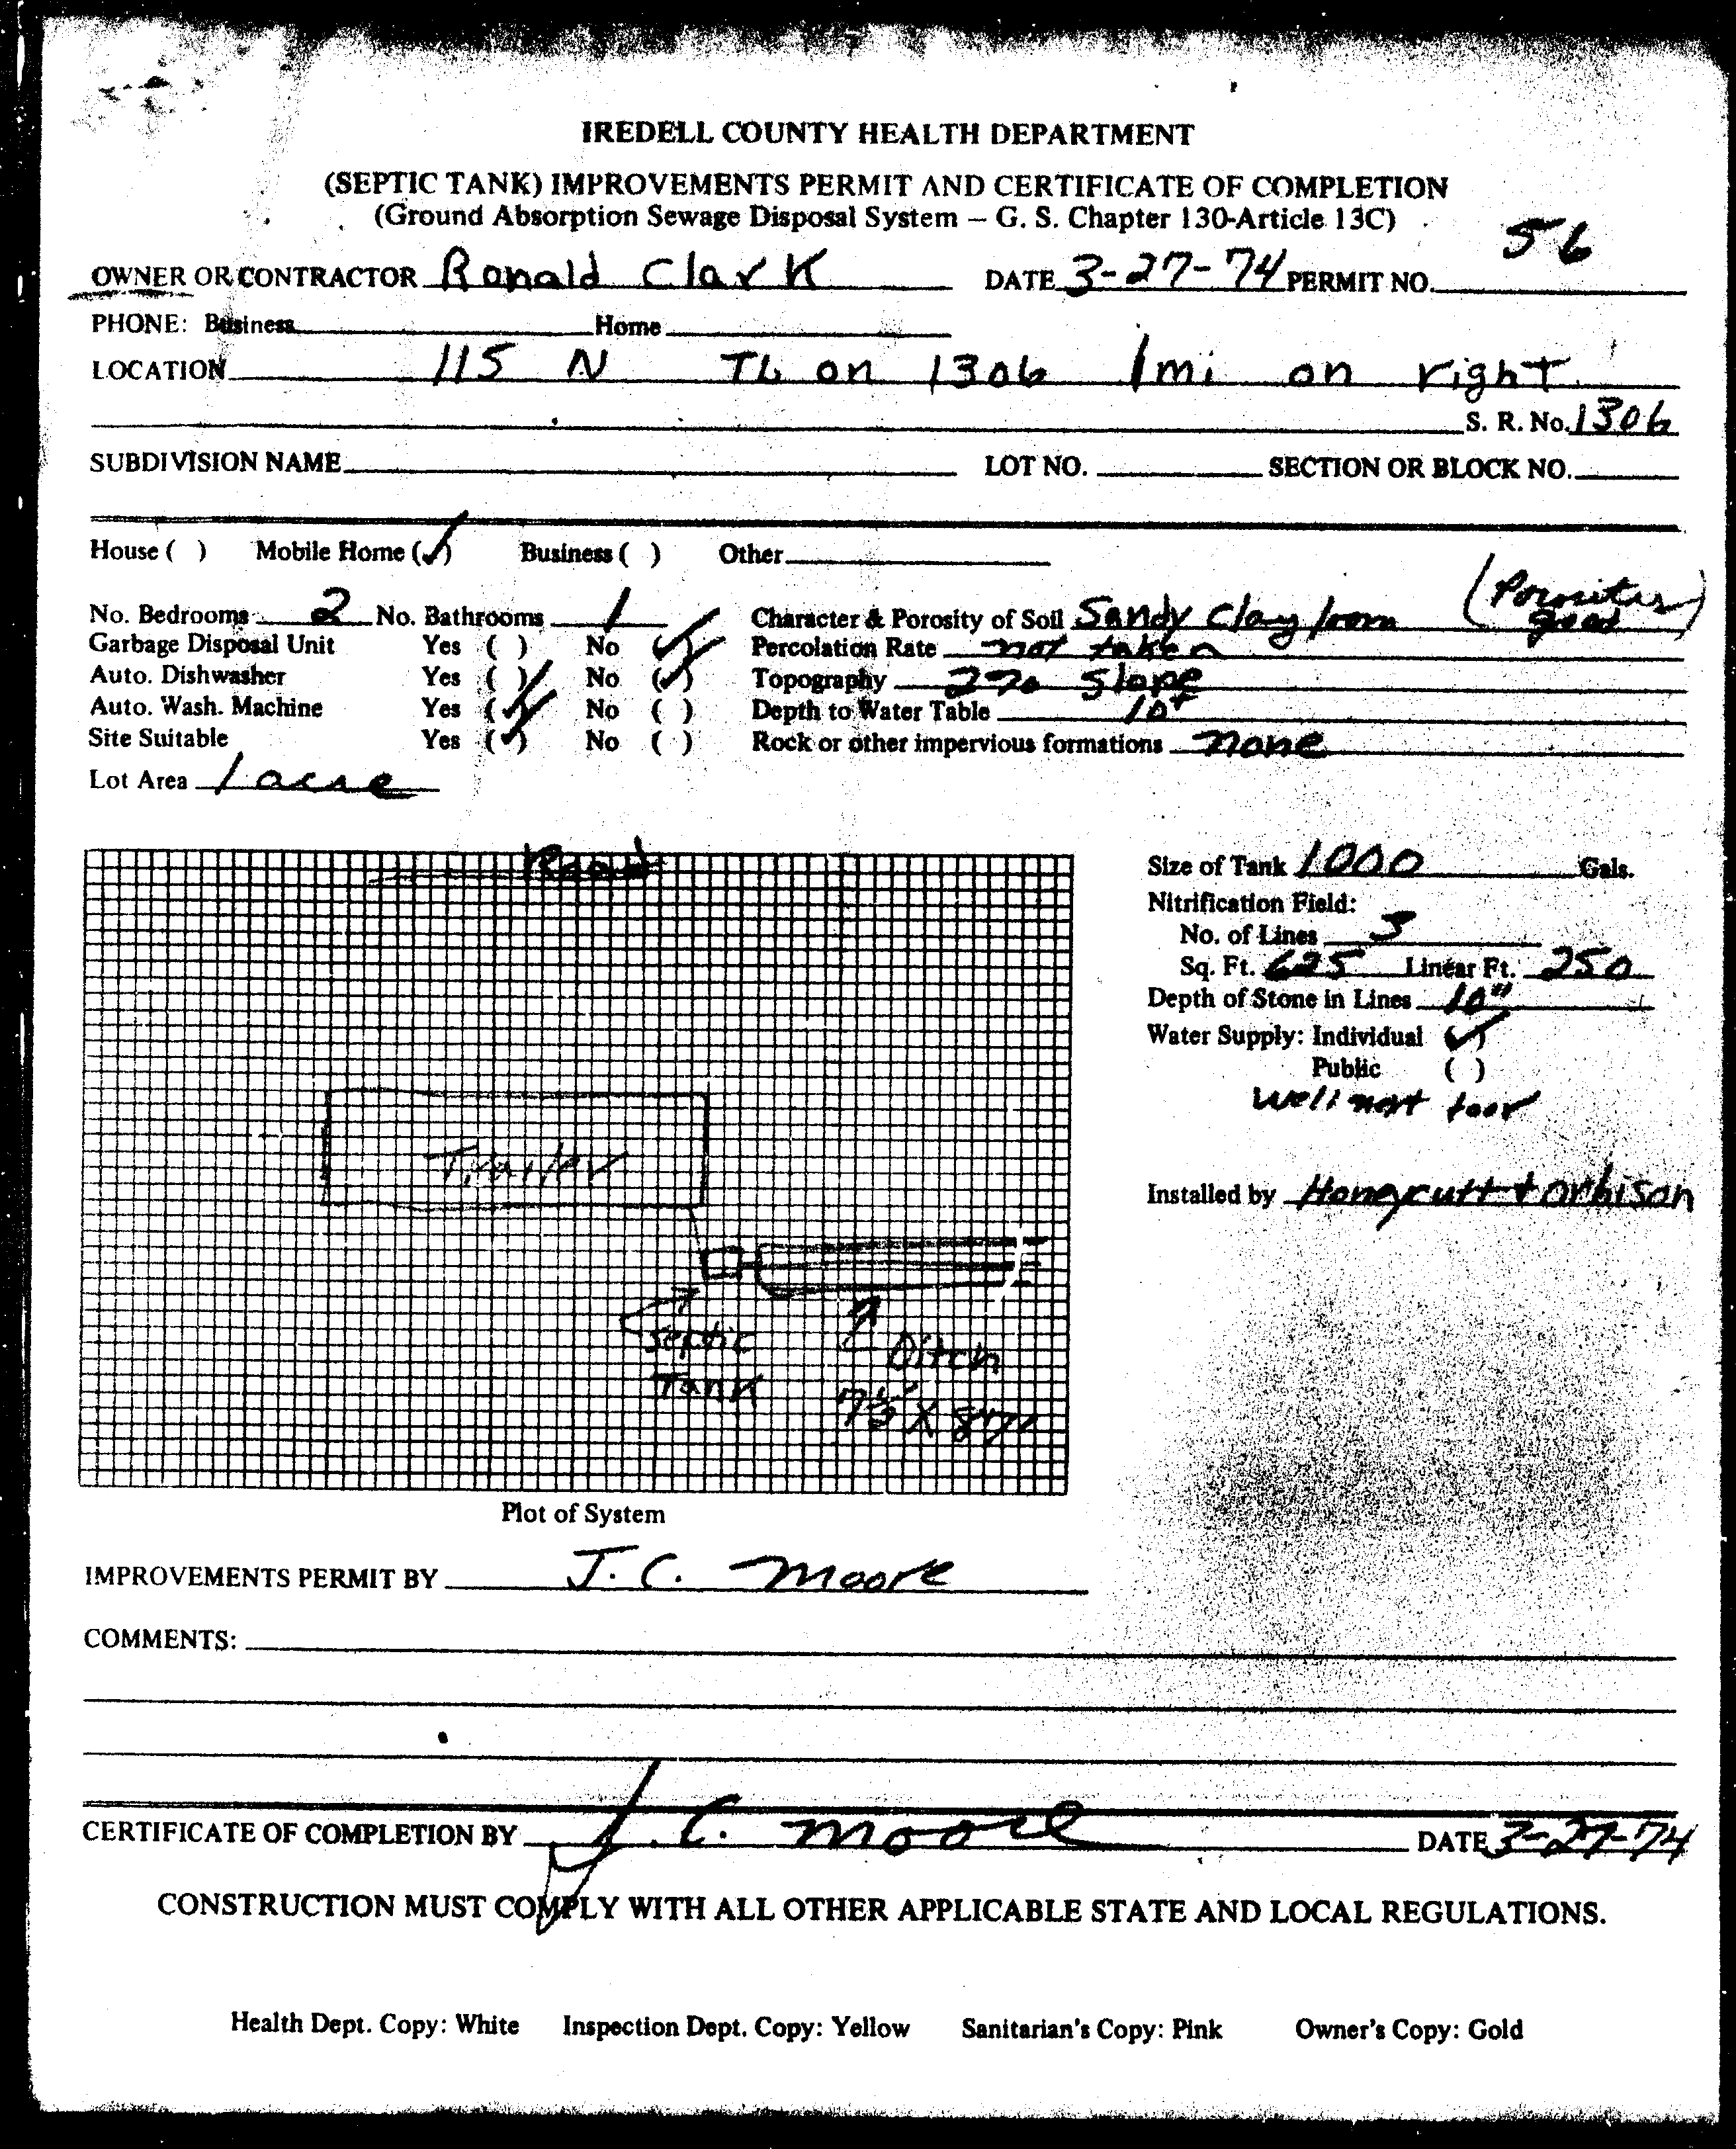 IREDELL COUNTY HEALTH DEPARTMENT
(SEPTIC TANK) IMPROVEMENTS PERMIT AND CERTIFICATE OF COMPLETION
(Ground Absorption Sewage Disposal System – G. S. Chapter 130-Article 13C)
OWNER OR CONTRACTOR Ronald Clark DATE 3-27-74 PERMIT NO. 56
PHONE: Business Home
LOCATION 115 N TL on 1306 1mi on right
S. R. No. 1306
SUBDIVISION NAME LOT NO. SECTION OR BLOCK NO.
House ( ) Mobile Home (✓) Business ( ) Other
No. Bedrooms 2 No. Bathrooms 1 Character & Porosity of Soil Sandy Clay loom (Porosity good)
Garbage Disposal Unit Yes ( ) No (✓) Percolation Rate not taken
Auto. Dishwasher Yes ( ) No (✓) Topography 2% Slope
Auto. Wash. Machine Yes (✓) No ( ) Depth to Water Table 10+
Site Suitable Yes (✓) No ( ) Rock or other impervious formations none
Lot Area 1 acre
Road
Size of Tank 1000 Gals.
Nitrification Field:
No. of Lines 3
Sq. Ft. 625 Linear Ft. 250
Depth of Stone in Lines 10"
Water Supply: Individual (✓)
Public ( )
Well next
Trailer
Installed by Honeycutt +
Septic
Tank
Ditch
Plot of System
IMPROVEMENTS PERMIT BY J. C. Moore
COMMENTS:
CERTIFICATE OF COMPLETION BY J. C. Moore DATE 3-27-74
CONSTRUCTION MUST COMPLY WITH ALL OTHER APPLICABLE STATE AND LOCAL REGULATIONS.
Health Dept. Copy: White Inspection Dept. Copy: Yellow Sanitarian's Copy: Pink Owner's Copy: Gold